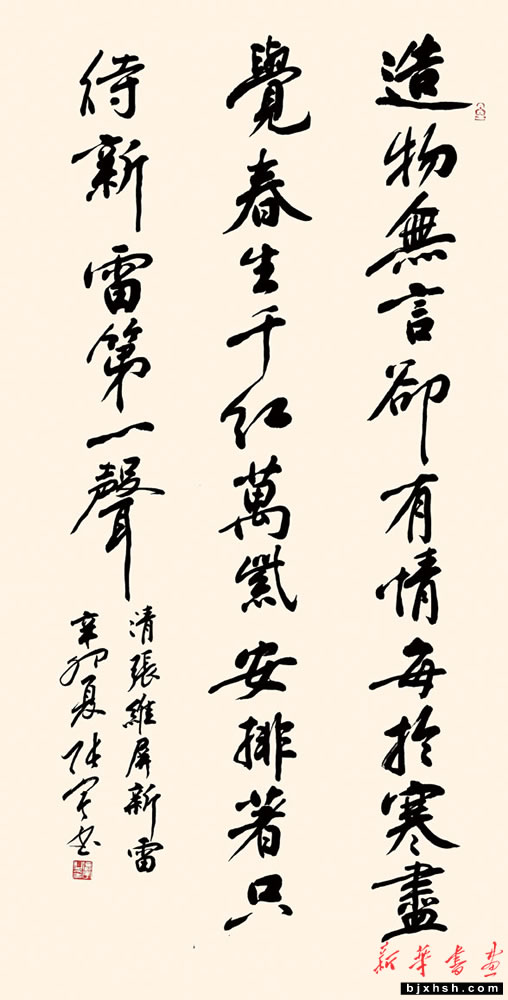 造物無言卻有情每於寒盡
覺春生千紅萬紫安排著只
待新雷第一聲
清張維屏新雷
辛卯夏張
新華書画
bjxhsh.com